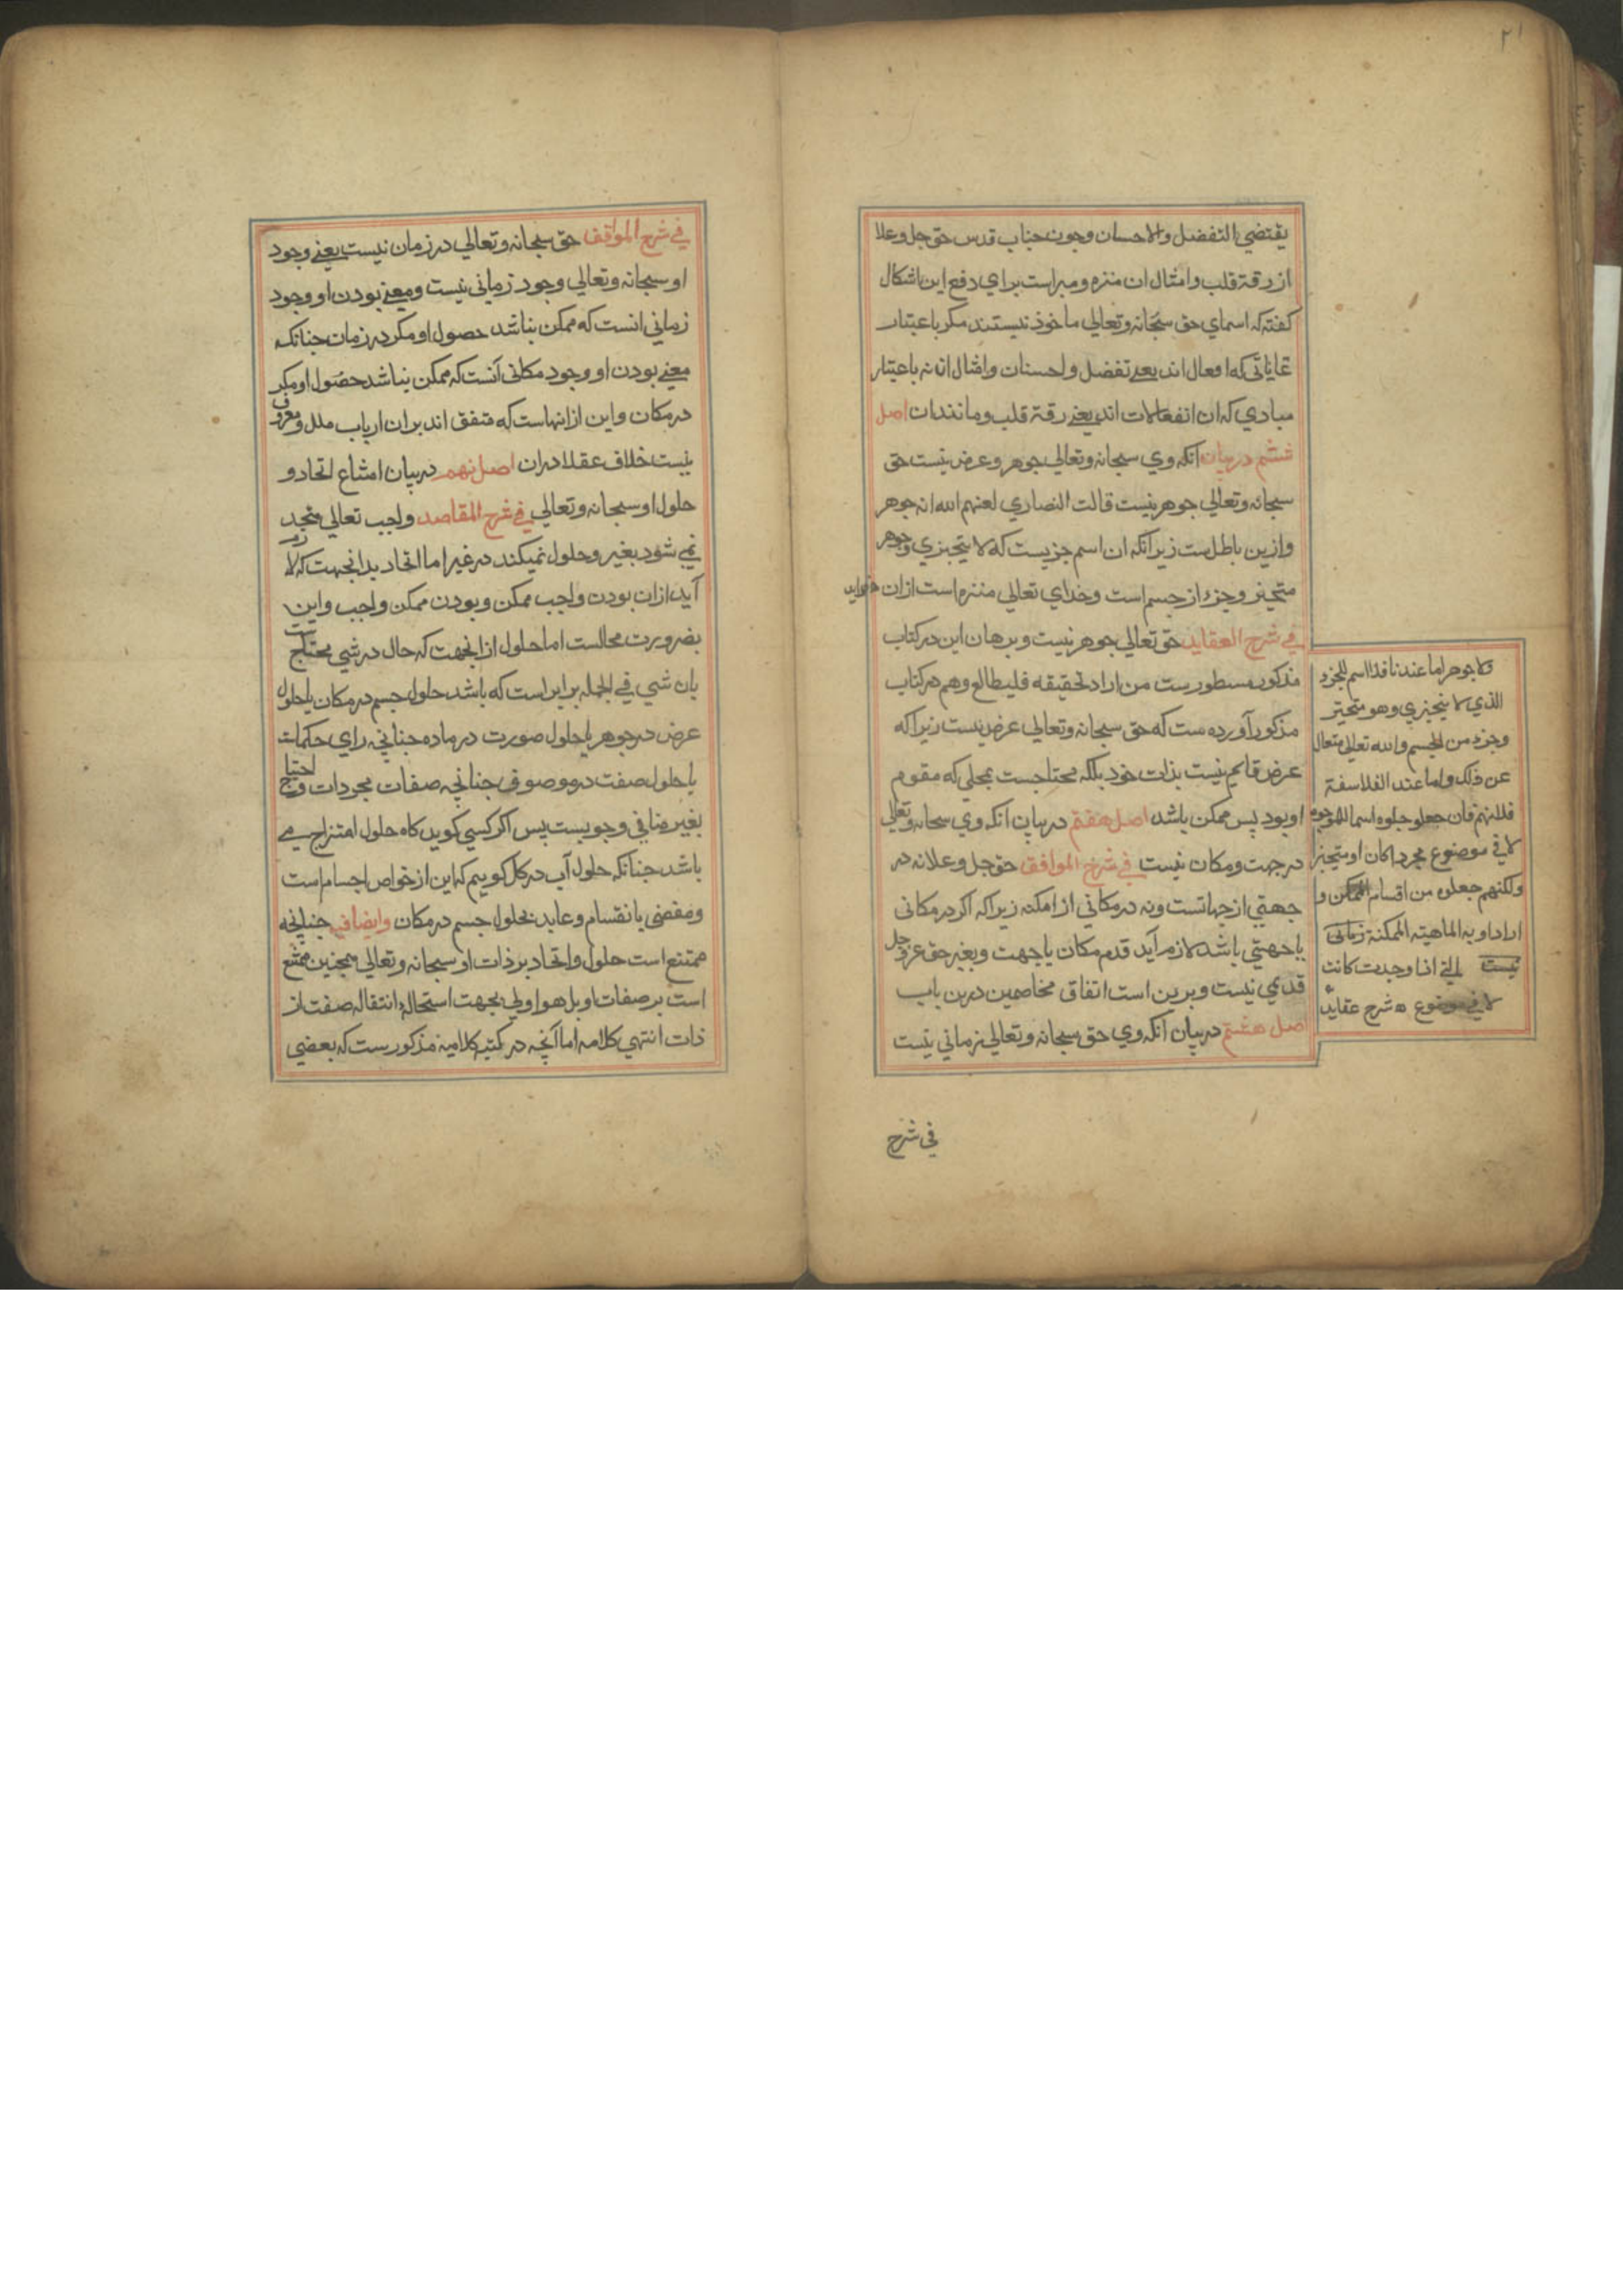 ٢١
يقتضي التفضل والاحسان وجون جناب قدس حق جل وعلا
از رقة قلب وامثال ان منزه ومبراست براي دفع اين اشكال
كفته كه اسماي حق سبحانه وتعالي ماخوذ نيستند مكر باعتبار
غاياتي كه افعال اند يعني تفضل واحسنان وامثال ان نه باعتبار
مبادي كه ان انفعالات اند يعني رقة قلب ومانند ان اصل
ششم در بيان انكه وي سبحانه وتعالي جوهر وعرض نيست حق
سبحانه وتعالي جوهر نيست قالت النصاري لعنهم الله انه جوهر
وازين باطل ست زيرانكه ان اسم جزيست كه لا يتجزي وجوهر
متحيز وجزء از جسم است وخداي تعالي منزه است از ان
في شرح العقايد حق تعالي جوهر نيست وبرهان اين در كتاب
مذكور مسطور ست من اراد تحقيقه فليطالع وهم در كتاب
مذكور آورده ست كه حق سبحانه وتعالي عرض نيست زيراكه
عرض قايم نيست بذات خود بلكه محتاجست بمحلي كه مقوم
او بود پس ممكن باشد اصل هفتم در بيان انكه وي سبحانه وتعالي
در جهت ومكان نيست في شرح الموافق حق جل وعلا نه در
جهتي از جهاتست ونه در مكاني از امكنه زيراكه اكر در مكاني
يا جهتي باشد لازم آيد قدم مكان يا جهت وبغير حق عز وجل
قديمي نيست وبرين است اتفاق مخاصمين درين باب
اصل هشتم در بيان انكه وي حق سبحانه وتعالي زماني نيست
في شرح
ولا جوهر اما عندنا فلا اسم للجزء
الذي لا يتجزي وهو متحيز
وجزء من الجسم والله تعالي متعال
عن ذلك واما عند الفلاسفة
فلانهم فان جعلو جلوه اسما للموجود
لا في موضوع مجردا كان او متحيزا
ولكنهم جعلوه من اقسام الممكن وا
ارادوا به الماهيته الممكنة زماني
نيست التي اذا وجدت كانت
لا في موضوع ه شرح عقايد
في شرح المواقف حق سبحانه وتعالي در زمان نيست يعني وجود
او سبحانه وتعالي وجود زماني نيست ومعني بودن او وجود
زماني انست كه ممكن نباشد حصول او مكر در زمان جنانكه
معني بودن او وجود مكاني آنست كه ممكن نباشد حصول او مكر
در مكان واين ازانهاست كه متفق اند بران ارباب ملل ومعروف
نيست خلاف عقلا دران اصل نهم در بيان امتناع اتحاد و
حلول او سبحانه وتعالي في شرح المقاصد واجب تعالي متحد
نمي شود بغير وحلول نميكند در غير اما اتحاد بدانجهت كه لازم
آيد ازان بودن واجب ممكن وبودن ممكن واجب واين
بضرورت محالست اما حلول ازانجهت كه حال در شي محتاجست
بان شي في الجمله برابر است كه باشد حلول جسم در مكان يا حلول
عرض در جوهر يا حلول صورت در ماده جنانجه راي حكماست
يا حلول صفت در موصوفي جنانچه صفات مجردات واحتياج
بغير منافي وجوبست پس اكر كسي كويد كاه حلول امتزاج مي
باشد جنانكه حلول آب در كل كوييم كه اين از خواص اجسام است
ومفضي بانقسام وعايد بحلول جسم در مكان وايضا فيه جنانچه
ممتنع است حلول واتحاد بر ذات او سبحانه وتعالي همچنين ممتنع
است بر صفات او بل هو اولي بجهت استحاله انتقال صفت از
ذات انتهي كلامه اما آنچه در كتب كلاميه مذكور ست كه بعضي